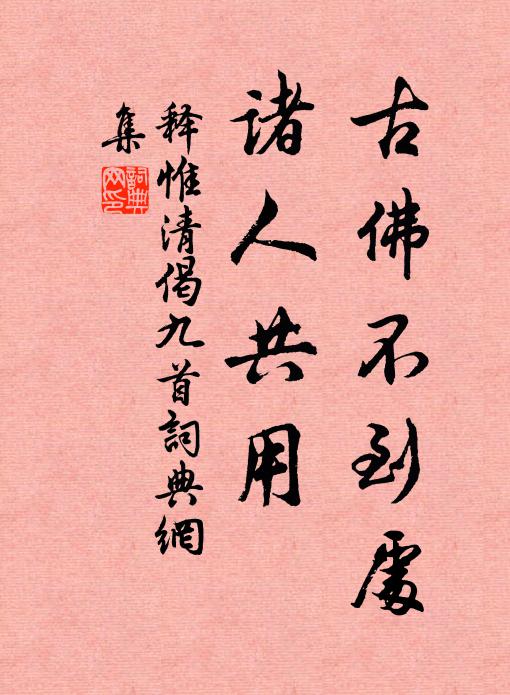 古佛不到處
諸人共用
释惟清偈九首詞典網
集
詞典网印